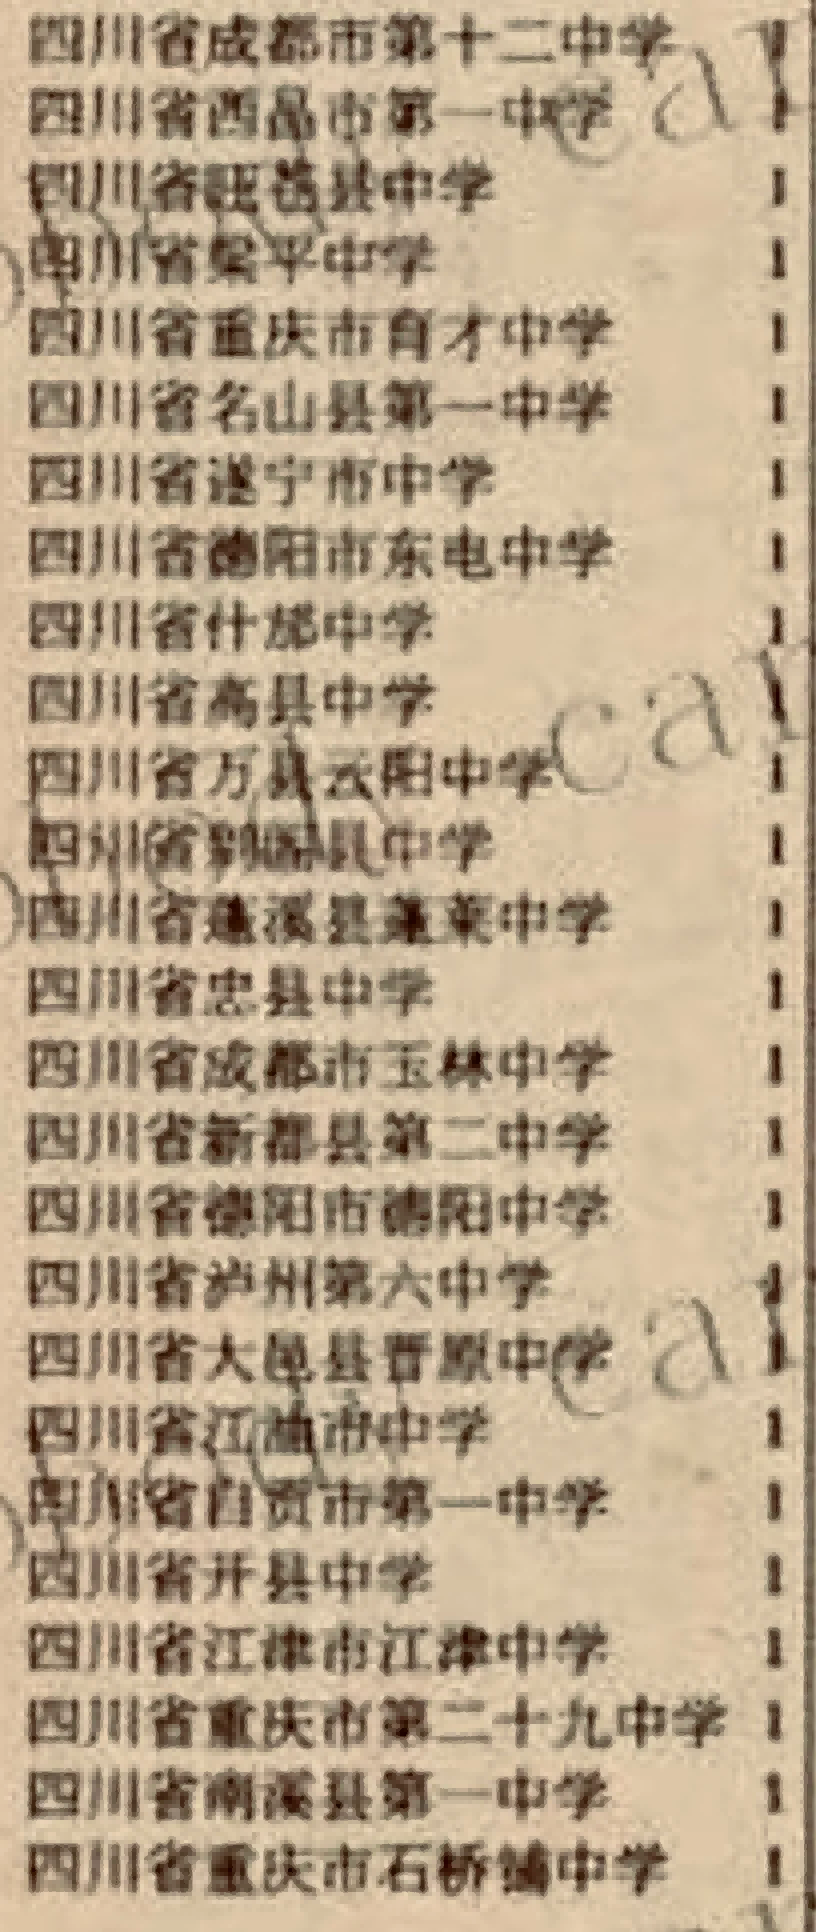 四川省成都市第十二中学 1
四川省西昌市第一中学 1
四川省旺苍县中学 1
四川省梁平中学 1
四川省重庆市育才中学 1
四川省名山县第一中学 1
四川省遂宁市中学 1
四川省德阳市东电中学 1
四川省什邡中学 1
四川省高县中学 1
四川省万县云阳中学 1
四川省剑阁县中学 1
四川省蓬溪县蓬莱中学 1
四川省忠县中学 1
四川省成都市玉林中学 1
四川省新都县第二中学 1
四川省德阳市德阳中学 1
四川省泸州第六中学 1
四川省大邑县晋原中学 1
四川省江油市中学 1
四川省自贡市第一中学 1
四川省开县中学 1
四川省江津市江津中学 1
四川省重庆市第二十九中学 1
四川省南溪县第一中学 1
四川省重庆市石桥铺中学 1